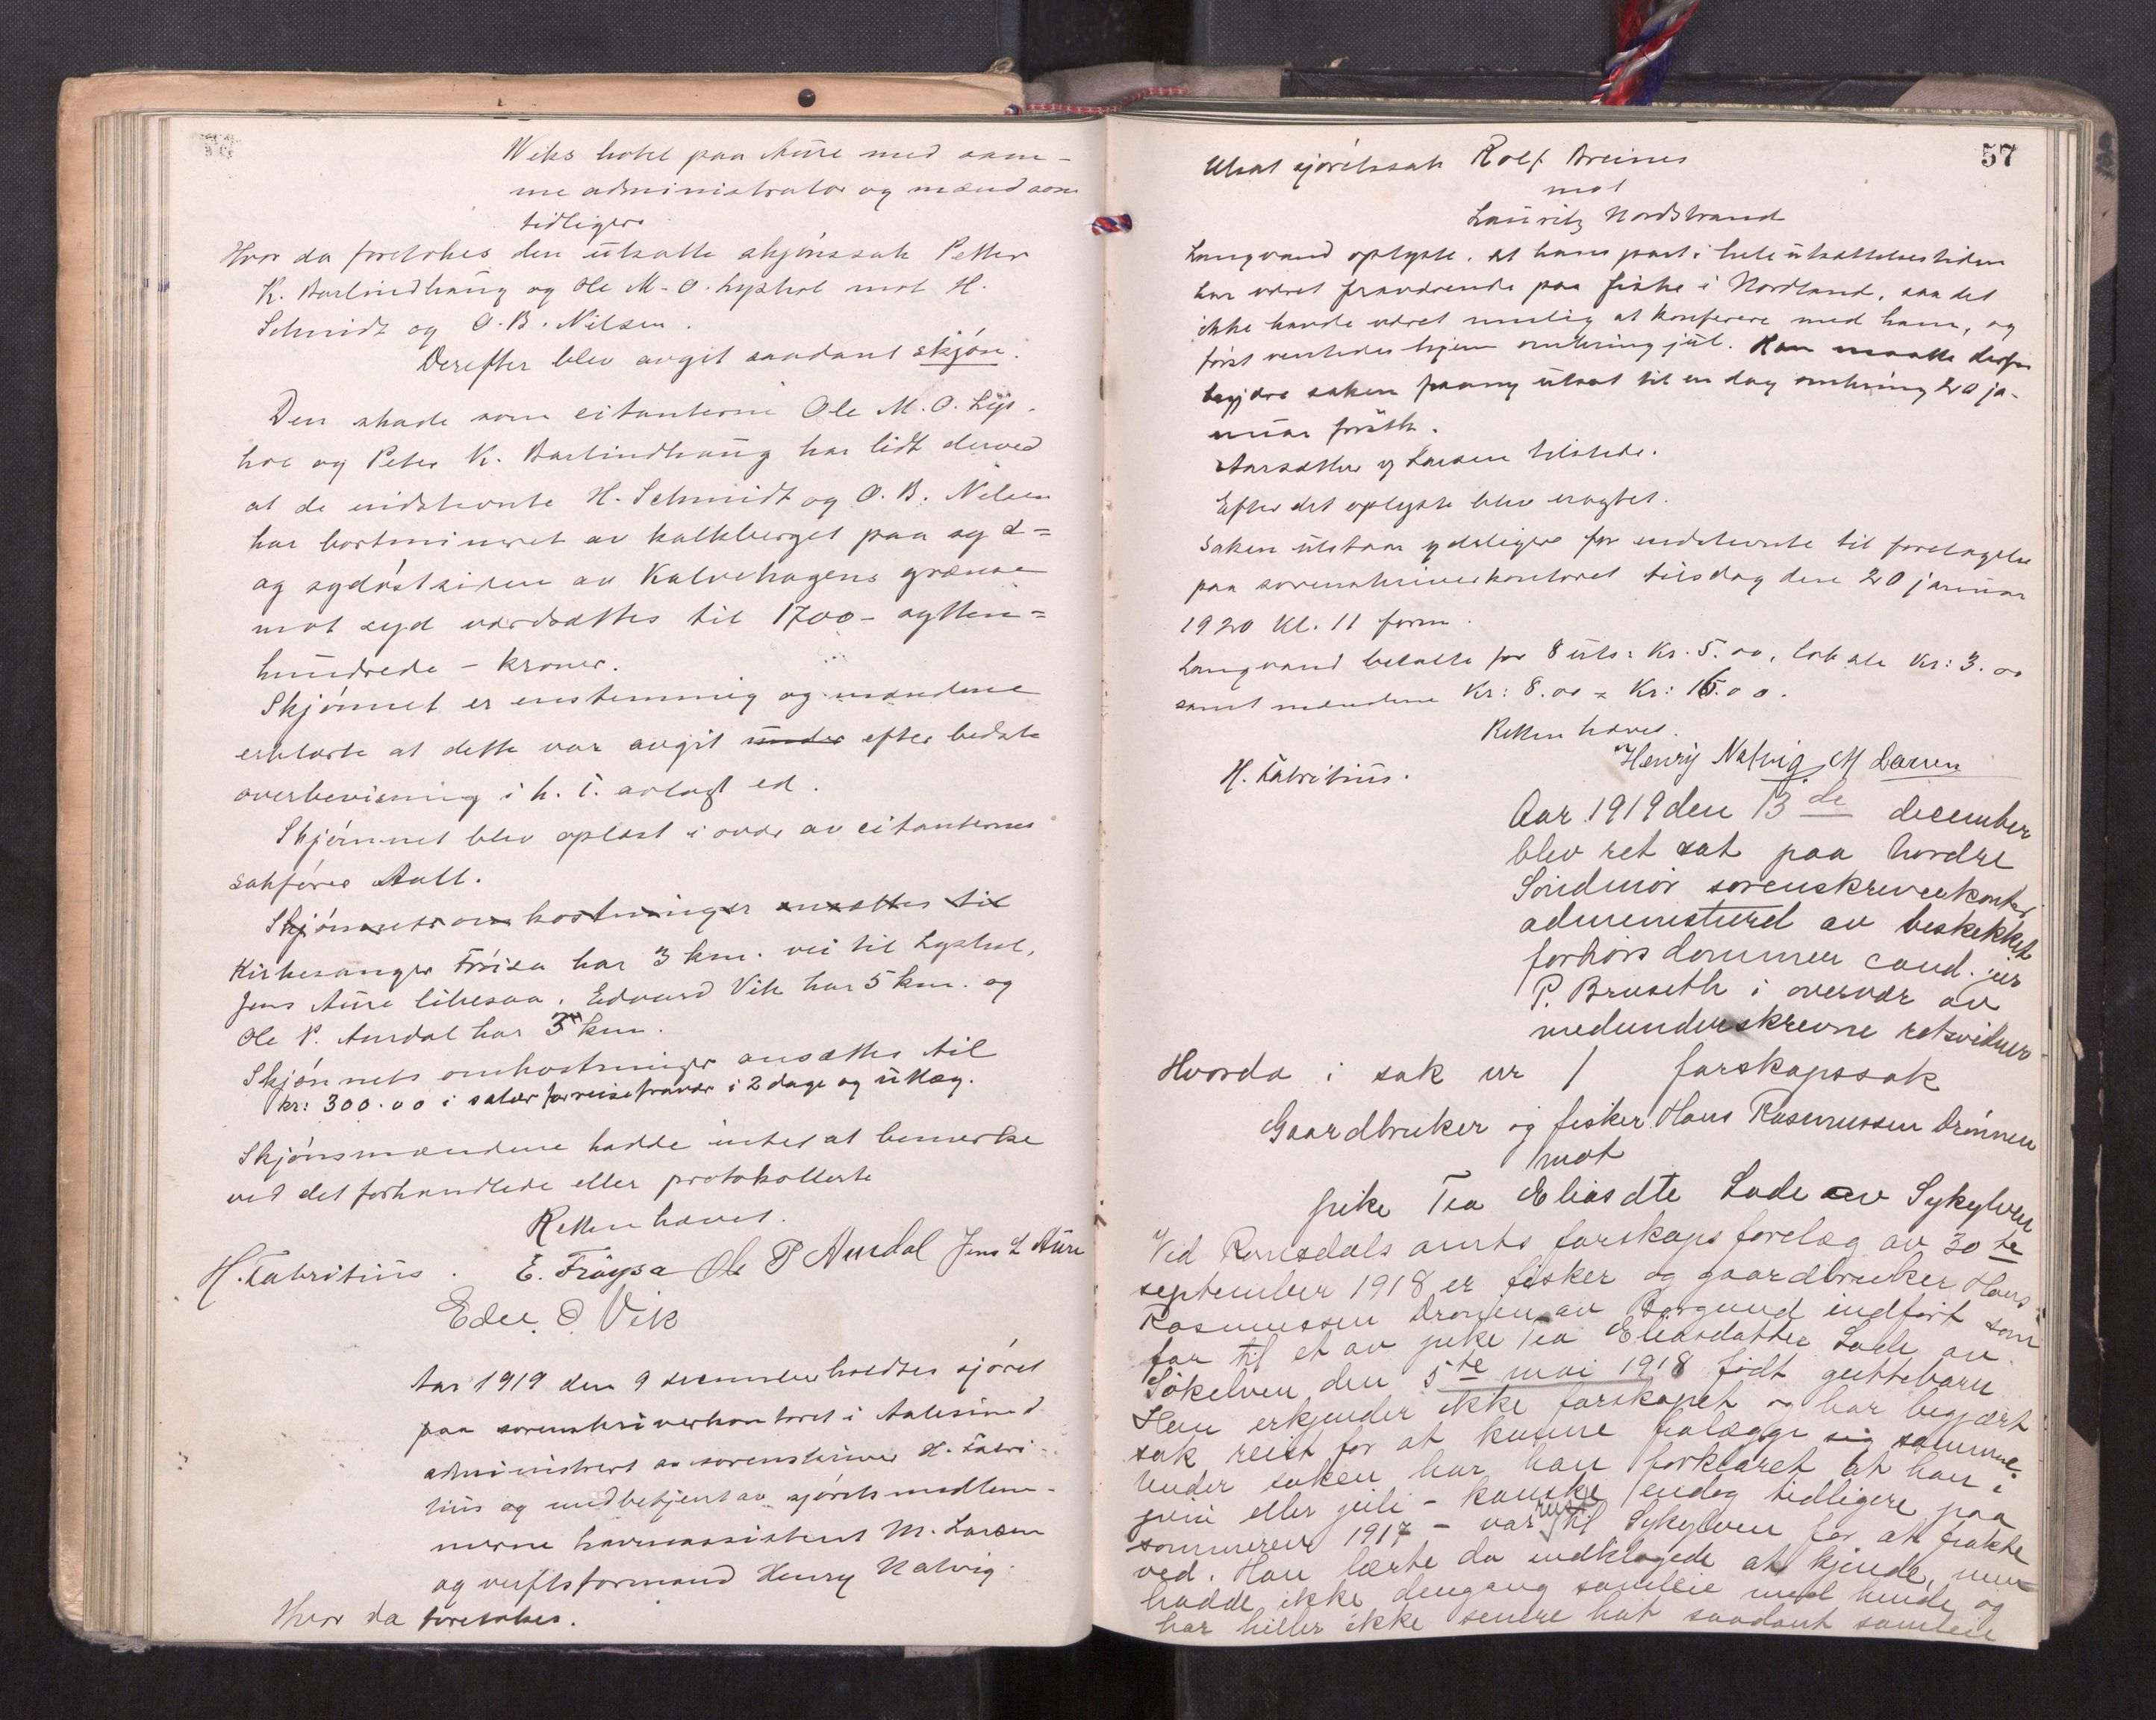 Wiks hotel paa Aure med sam-
me administrator og mænd som
tidligere
Hvor da foretokes den utsatte skjønssak Petter
K. Barlindhaug og Ole M. O. Lyshol mot H.
Schmidt og O. B. Nilsen.
Derefter blev avgit saadant skjøn.
Den skade som citanterne Ole M. O. Lys-
hol og Peter K. Barlindhaug har lidt derved
at de indstevnte H. Schmidt og O. B. Nilsen
har bortmineret av kalkberget paa syd=
og sydøstsiden av Kalvehagens grænse
mot syd værdsættes til 1700 - sytten=
hundrede - kroner.
Skjønnet er enstemmig og mændene
erklærte at dette var avgit under efter bedste
overbevisning i h. t. avlagt ed.
Skjønnet blev oplæst i overv. av citanternes
sakfører Aall.
Skjønnets omkostninger ansættes til
Kirkesanger Frøisa har 3 km. vei til Lyshol,
Jens Aure likesaa. Edvard Vik har 5 km. og
Ole P. Aurdal har 3 km.
Skjønnets omkostninger ansættes til
kr: 300.00 i salær for reisefravær i 2 dage og utlæg.
Skjønsmændene hadde intet at bemerke
ved det forhandlede eller protokollerte
Retten hævet.
H. Fabritius. E. Frøysa Ole P Aurdal Jens L Aure
Edv. O. Vik
Aar 1919 den 9 december holdtes sjøret
paa sorenskriverkontoret i Aalesund
administrert av sorenskriver H. Fabri-
tius og medbetjent av sjøretsmedlem-
merne havnassistent M. Larsen
og verftsformand Henry Natvig
Hvor da foretokes.
57
Utsat sjøretssak Rolf Breines
mot
Lauritz Nordstrand
Langvand oplyste, at hans part i hele utsættelsestiden
har været fraværende paa fiske i Nordland, saa det
ikke havde været mulig at konferere med ham, og
først ventedes hjem omkring jul. Han maatte derfor
begjære saken paany utsat til en dag omkring 20 ja-
nuar førstk.
Aarsæther og Larsen tilstede.
Efter det oplyste blev eragtet.
Saken utstaar ydeligere for indstevnte til foretagelse
paa sorenskriverkontoret tirsdag den 20 januar
1920 kl. 11 form.
Langvand betalte for 8 uts: Kr. 5.00, lokale Kr: 3.00
samt mændene Kr: 8.00 = Kr: 16.00.
Retten hævet.
H. Fabritius. Henry Natvig M Larsen
Aar 1919 den 13de december
blev ret sat paa Nordre
Søndmør sorenskriverkontor
administrerd av beskikket
forhørsdommer cand. jur
P. Bruseth i overvær av
medunderskrevne retsvidner
Hvorda i sak nr 1 farskapssak
Gaardbruker og fisker Hans Rasmussen Drønnen
mot
pike Tea Eliasdtr Lade av Sykylven
Ved Romsdals amts farskapsforelæg av 30te
september 1918 er fisker og gaardbruker Hans
Rasmussen Dronen av Borgund indført som
far til et av pike Tea Eliasdatter Lade av
Søkelven den 5te mai 1918 født guttebarn
Han erkjender ikke farskapet og har begjært
sak reist for at kunne fralægge sig samme.
Under saken har han forklaret at han i
juni eller juli - kanske endog tidligere paa
sommeren 1917 - var reist til Sykylven for at frakte
ved. Han lærte da indklagede at kjende, men
hadde ikke dengang samleie med hende og
har heller ikke senere hat saadant samleie